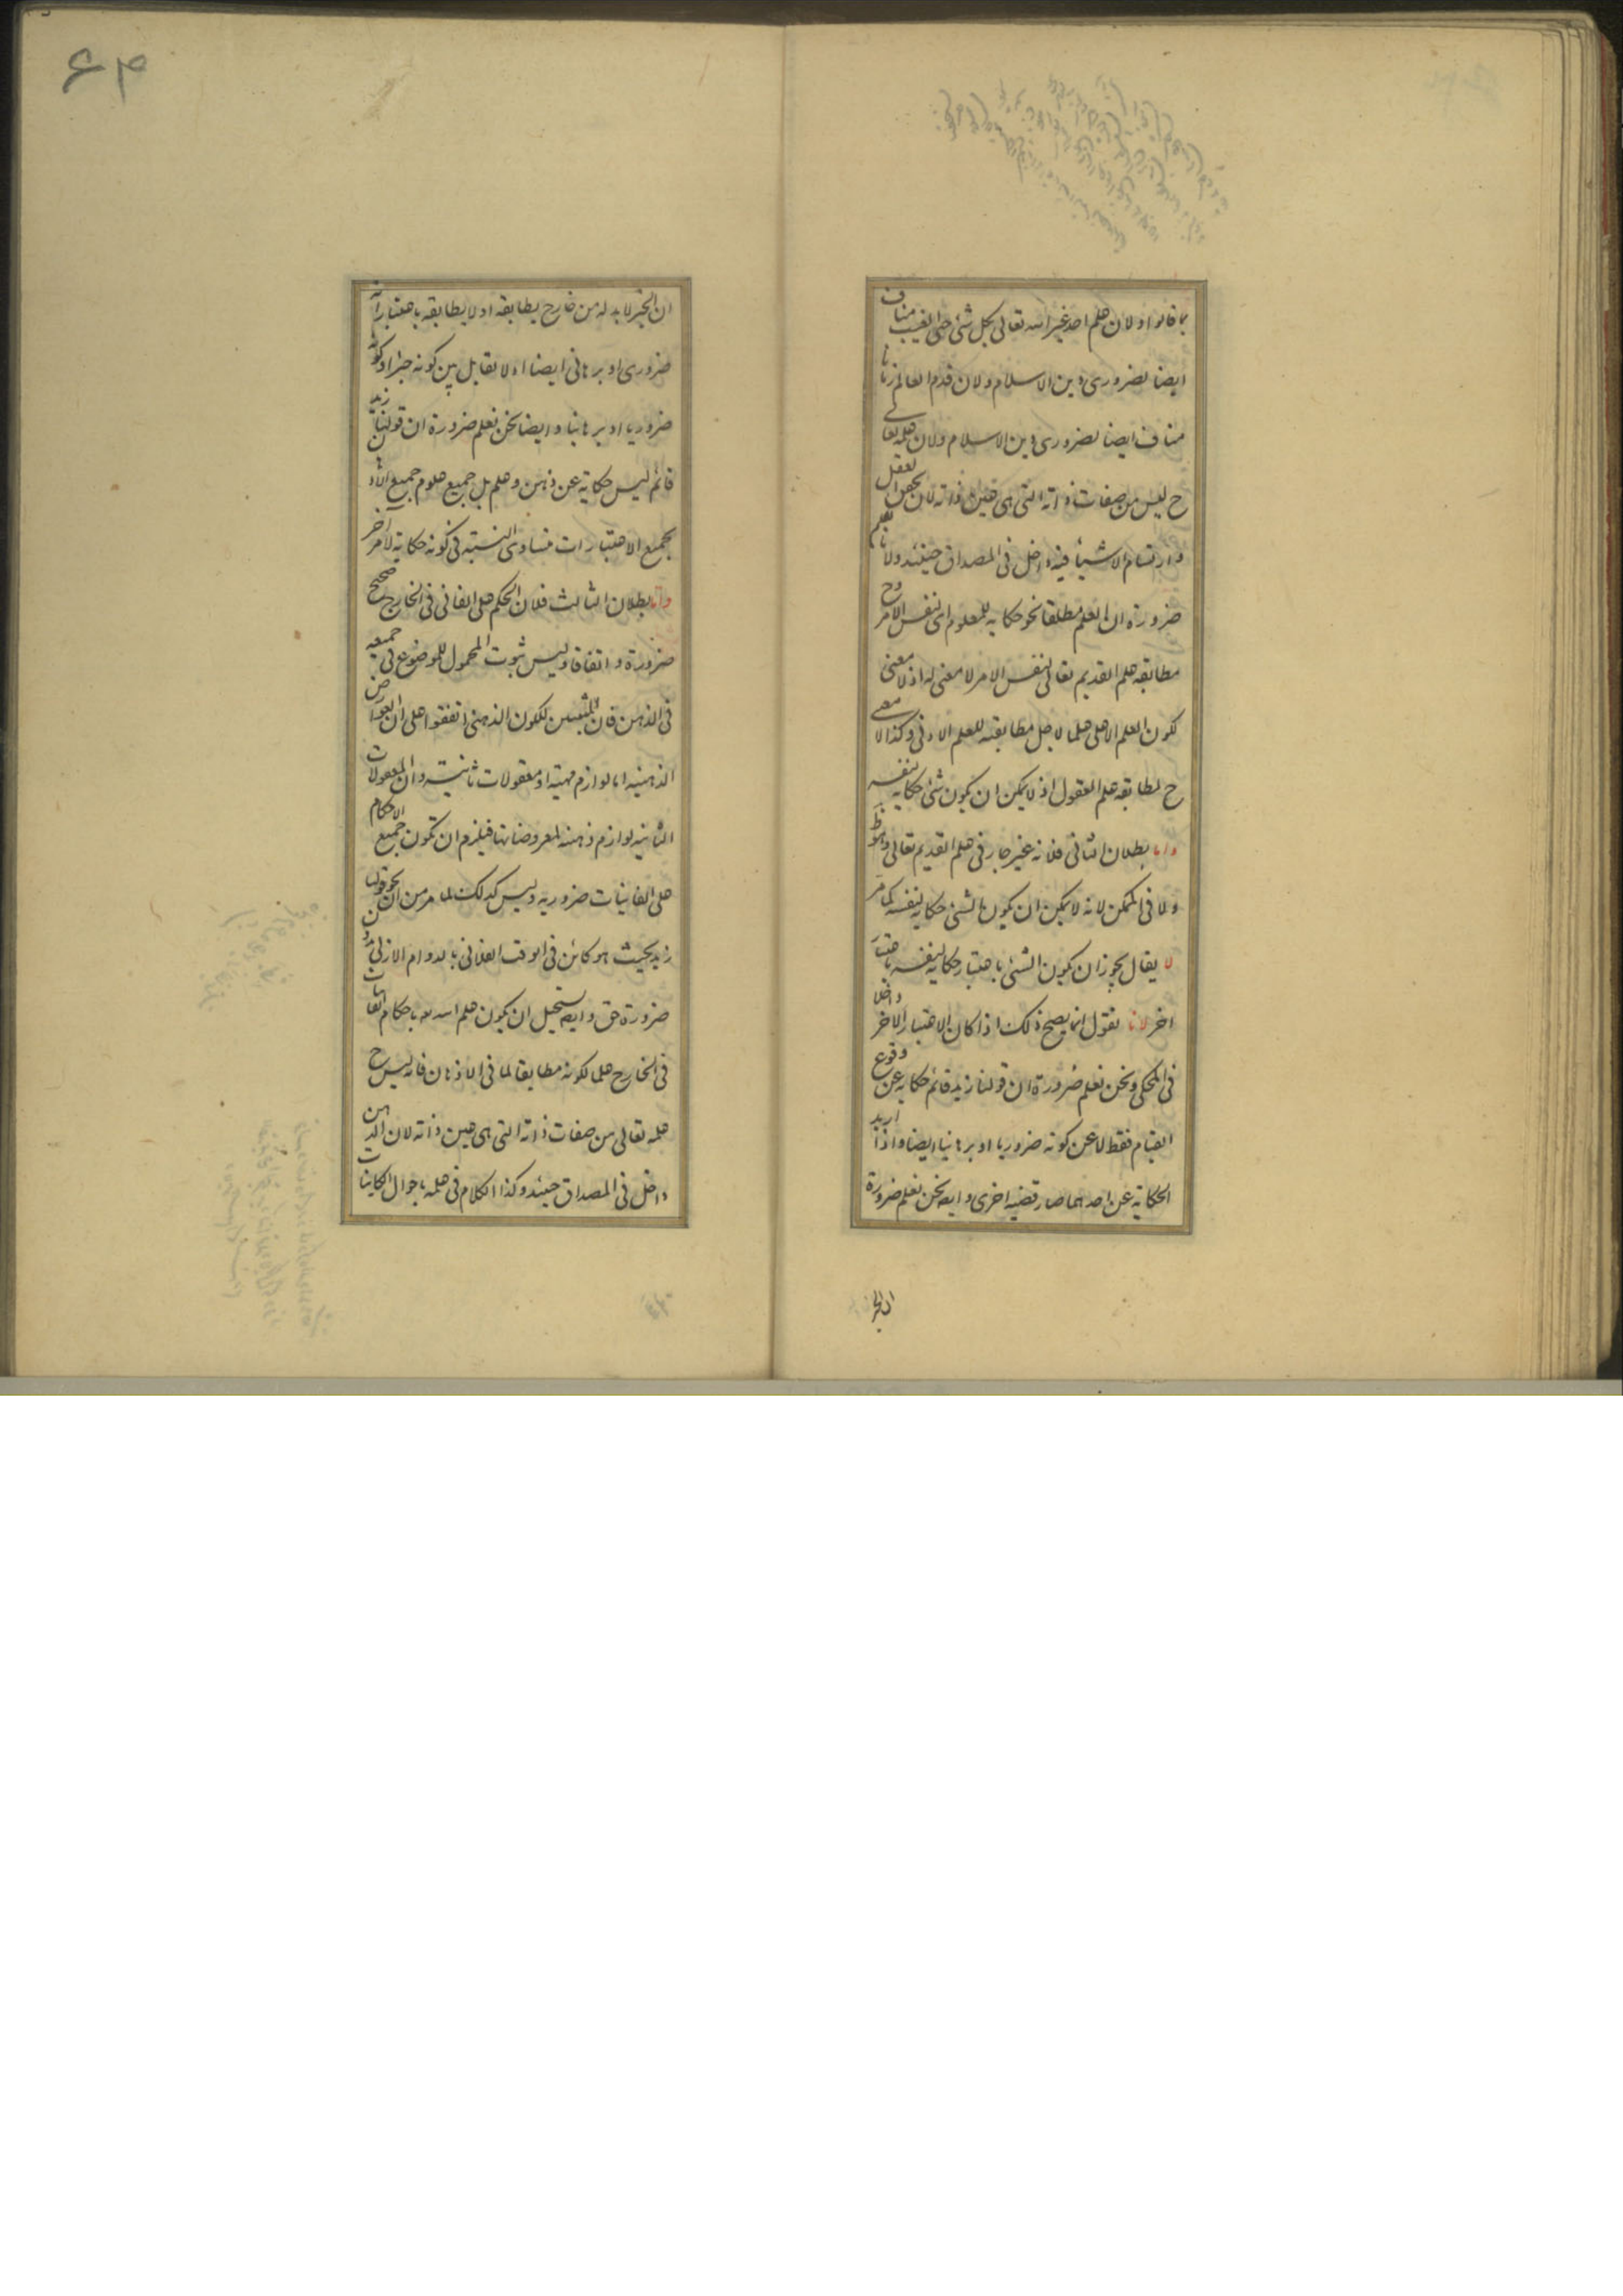 ما قالوا ولان علم احد غير الله تعالى بكل شئ حتى الغيب مناف
ايضا لضرورى دين الاسلام ولان قدم العالم زمانا
مناف ايضا لضرورى دين الاسلام ولان علمه تعالى
ح ليس من صفات ذاته التى هى عين ذاته لان العقل
وارتسام الاشياء فيه داخل فى المصداق حينئذ ولانا نعلم
ضرورة ان العلم مطلقا نحو حكاية للمعلوم اى نفس الامر وح
مطابقه علم القديم تعالى لنفس الامر لا معنى له اذ لا معنى
لكون العلم الاعلى علما لاجل مطابقته للعلم الادنى وكذا لا معنى
ح لمطابقه علم العقول اذ لا يمكن ان يكون شئ حكاية لنفسه
واما بطلان الثانى فلانه غير جار فى علم القديم تعالى وهو ظ
ولا فى الممكن لانه لا يمكن ان يكون الشئ حكاية لنفسه كما مر
لا يقال يجوز ان يكون الشئ باعتبار حكاية لنفسه باعتبار
اخر لانا نقول انما يصح ذلك اذا كان الاعتبار الاخر داخلا
فى المحكى ونحن نعلم ضرورة ان قولنا زيد قائم حكاية عن وقوع
القيام فقط لا عن كونه ضروريا او برهانيا ايضا واذا اريد
الحكاية عن احدهما صار قضيه اخرى وايضه نحن نعلم ضرورة
ان الخبر
۶۴
ان الخبر لابد له من خارج يطابقه او لا يطابقه باعتبار انه
ضرورى او برهانى ايضا اذ لا تقابل بين كونه خبرا وكونه
ضروريا او برهانيا وايضا نحن نعلم ضرورة ان قولنا زيد
قائم ليس حكاية عن ذهن وعلم بل جميع علوم جميع
بجميع الاعتبارات متساوى النسبته فى كونه حكاية لامر اخر
واما بطلان الثالث فلان الحكم على الفانى فى الخارج صحيح
ضرورة واتفاقا وليس ثبوت المحمول للموضوع فى جميعه
فى الذهن فان المثبتين للكون الذهنى اتفقوا على ان العوارض
الذهنيه اما لوازم مهيته او معقولات ثانيته وان المعقولات
الثانيه لوازم ذهنه لمعروضاتها فيلزم ان تكون جميع الاحكام
على الفانيات ضروريه وليس كذلك لما مر من ان نحو قولنا
زيد بحيث هو كائن فى الوقت الفلانى بالدوام الازلى بدون
ضرورة حق وايضه يستحيل ان يكون علم الله تعه باحكام الفانيات
فى الخارج علما لكونه مطابقا لما فى الاذهان فانه ليس ح
علمه تعالى من صفات ذاته التى هى عين ذاته لان الذهن
داخل فى المصداق حينئذ وكذا الكلام فى علمه باحوال الكاينات